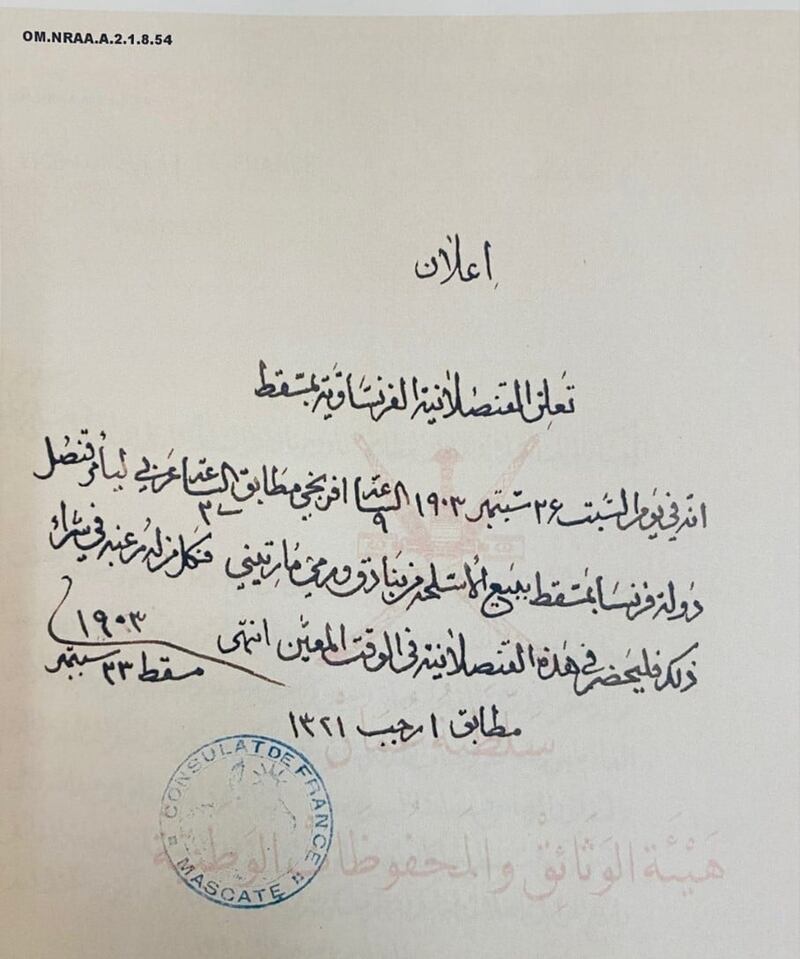 OM.NRAA.A.2.1.8.54
إعلان
تعلن القنصلانية الفرنساوية بمسقط
انه في يوم السبت ٢٦ سبتمبر ١٩٠٣ الساعة ٩ افرنجي مطابق الساعة ٣ عربي ليأمر قنصل
دولة فرنسا بمسقط ببيع الأسلحة من بنادق ورمي مارتيني فكل من له رغبة في شراء
ذلك فليحضر في هذه القنصلانية في الوقت المعين انتهى
مسقط ٢٣ سبتمبر ١٩٠٣
مطابق ١ رجب ١٣٢١
CONSULAT DE FRANCE
MASCATE
سلطنة عمان
هيئة الوثائق والمحفوظات الوطنية